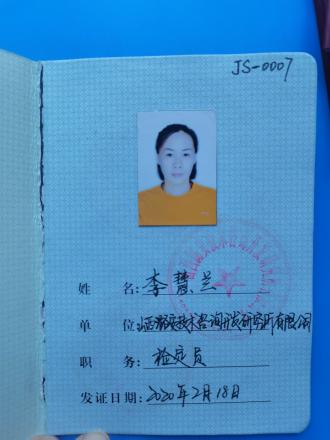 JS-0007
姓 名:李慧兰
单 位:江西瑞安技术咨询开发研究所有限公司
职 务:检定员
发证日期:2020年2月18日